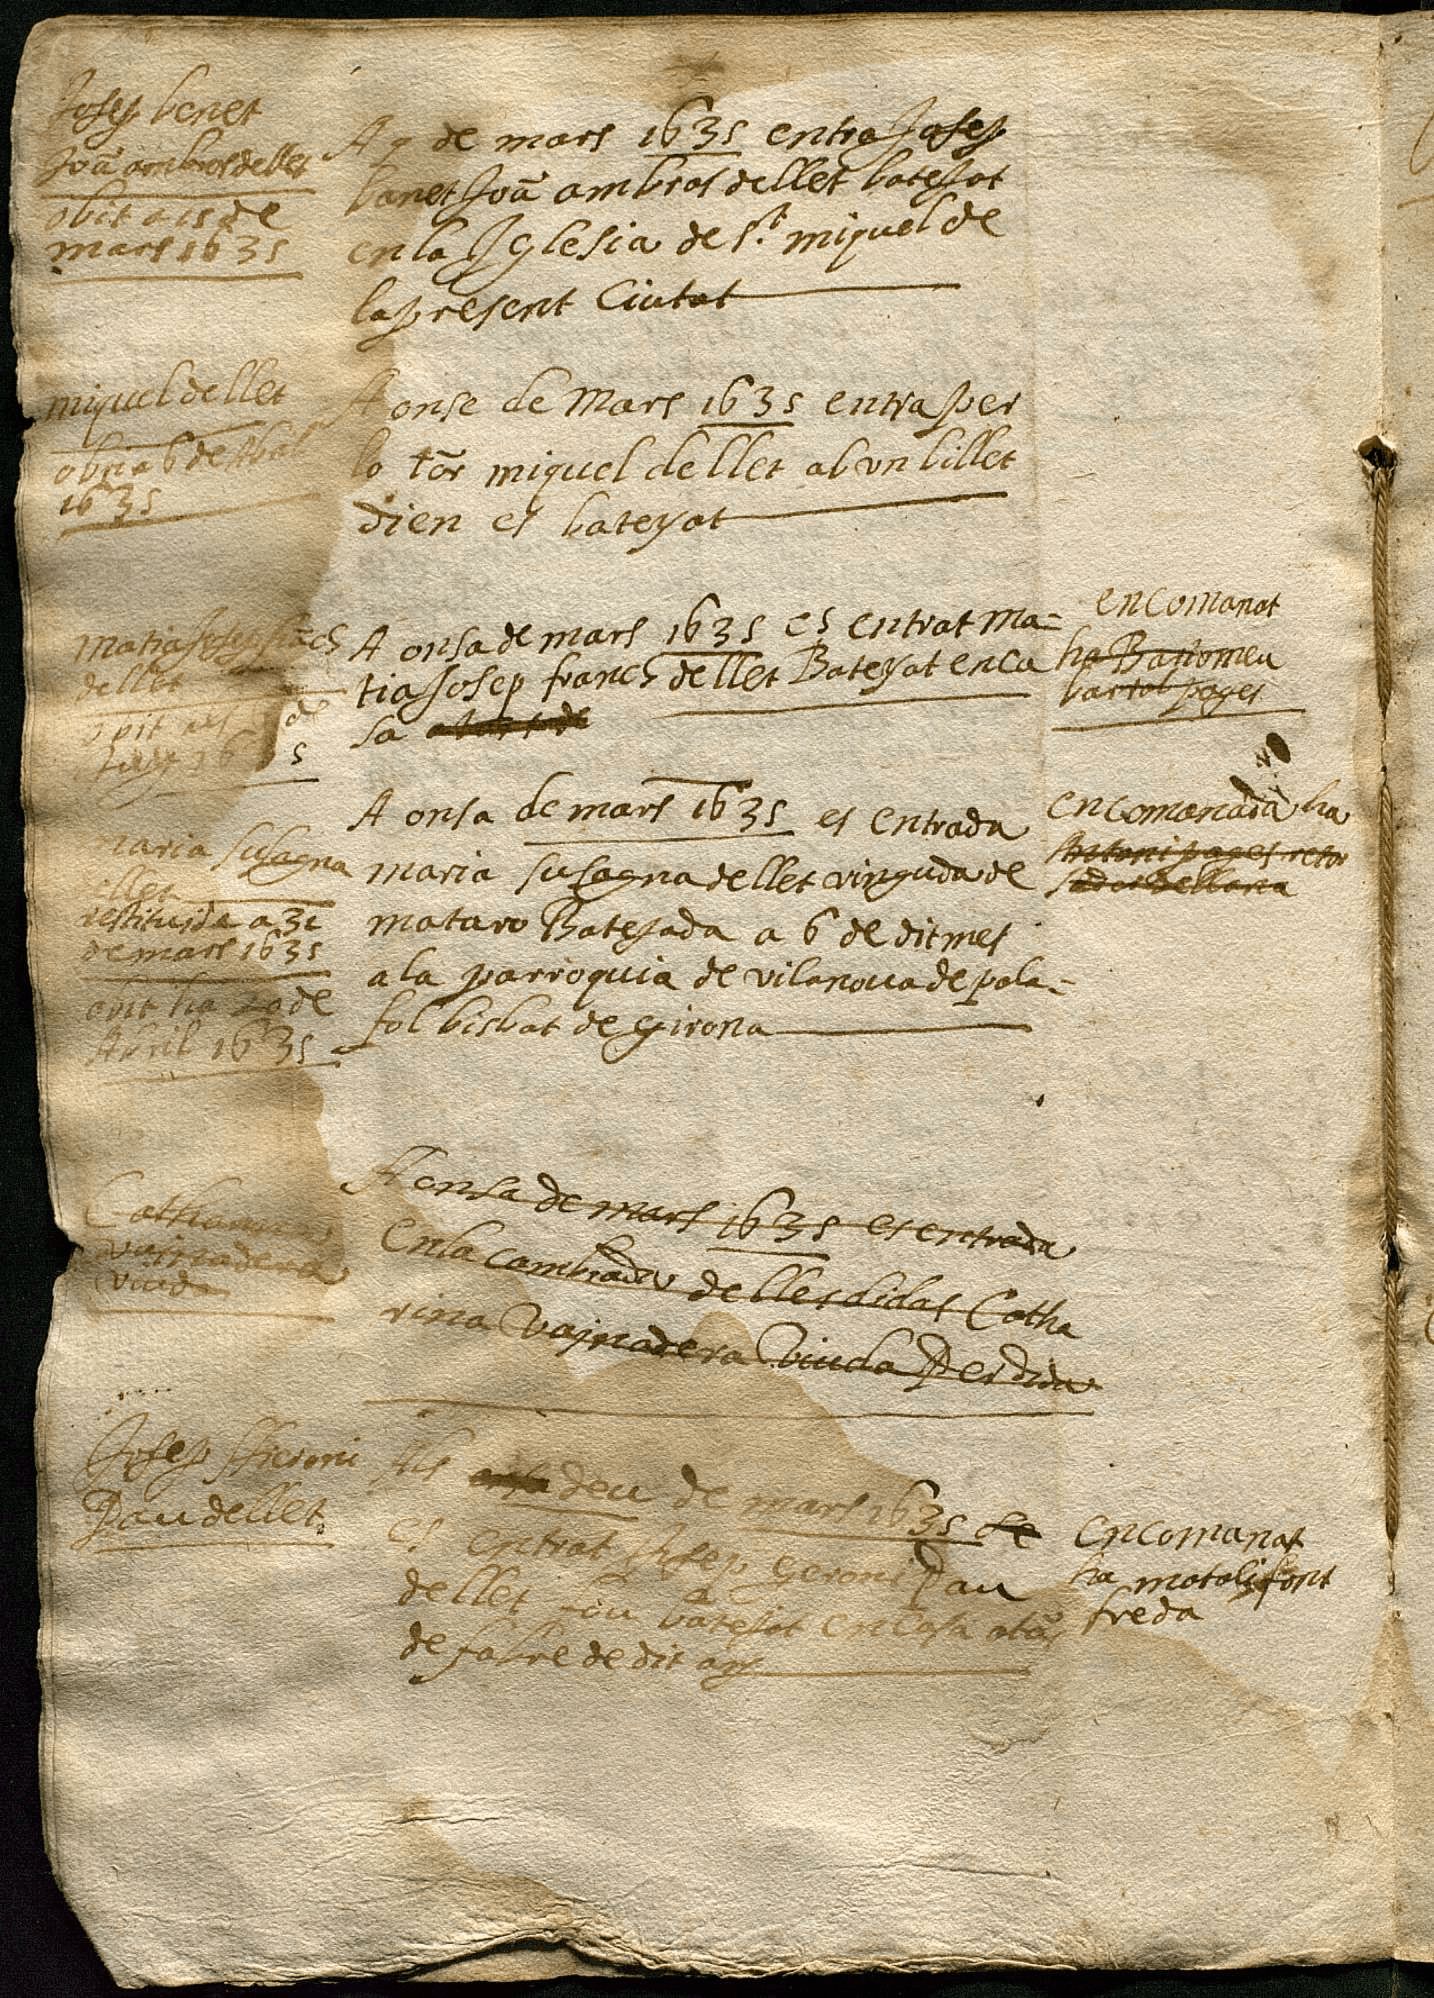 Josep benet
Joã ambros de llet
obit a 15 de
mars 1635
A 9 de mars 1635 entra Josep
banet Joã ambros de llet batejat
en la Iglesia de s.t miquel de
la present Ciutat
miquel de llet
obit a 6 de Abril
1635
A onse de Mars 1635 entra per
lo tor miquel de llet ab vn billet
dien es bateyat
matia Josep franch
dellet
obit als de
1635
A onsa de mars 1635 es entrat ma=
tia Josep franch de llet Bateyat en ca
sa
encomanat
ha Bartomeu
bartol pages
maria susagna
llet
restituida a 31
de mars 1635
obit ha 20 de
Abril 1635
A onsa de mars 1635 es entrada
maria susagna de llet vinguda de
mataro Batejada a 6 de dit mes
a la parroquia de vilanoua de pala=
fol bisbat de girona
encomanada ha
Antoni pages
Catharina
vajnadera
viuda
A onsa de mars 1635 es entrada
en la cambrada de lles didas Catha
rina vajnadera viuda Perdida
Josep Hieroni
Pau de llet
Als deu de mars 1635
es entrat Josep geroni Pau
de llet fou batejat en casa
de febre de dit any
encomanat
ha matali font
freda